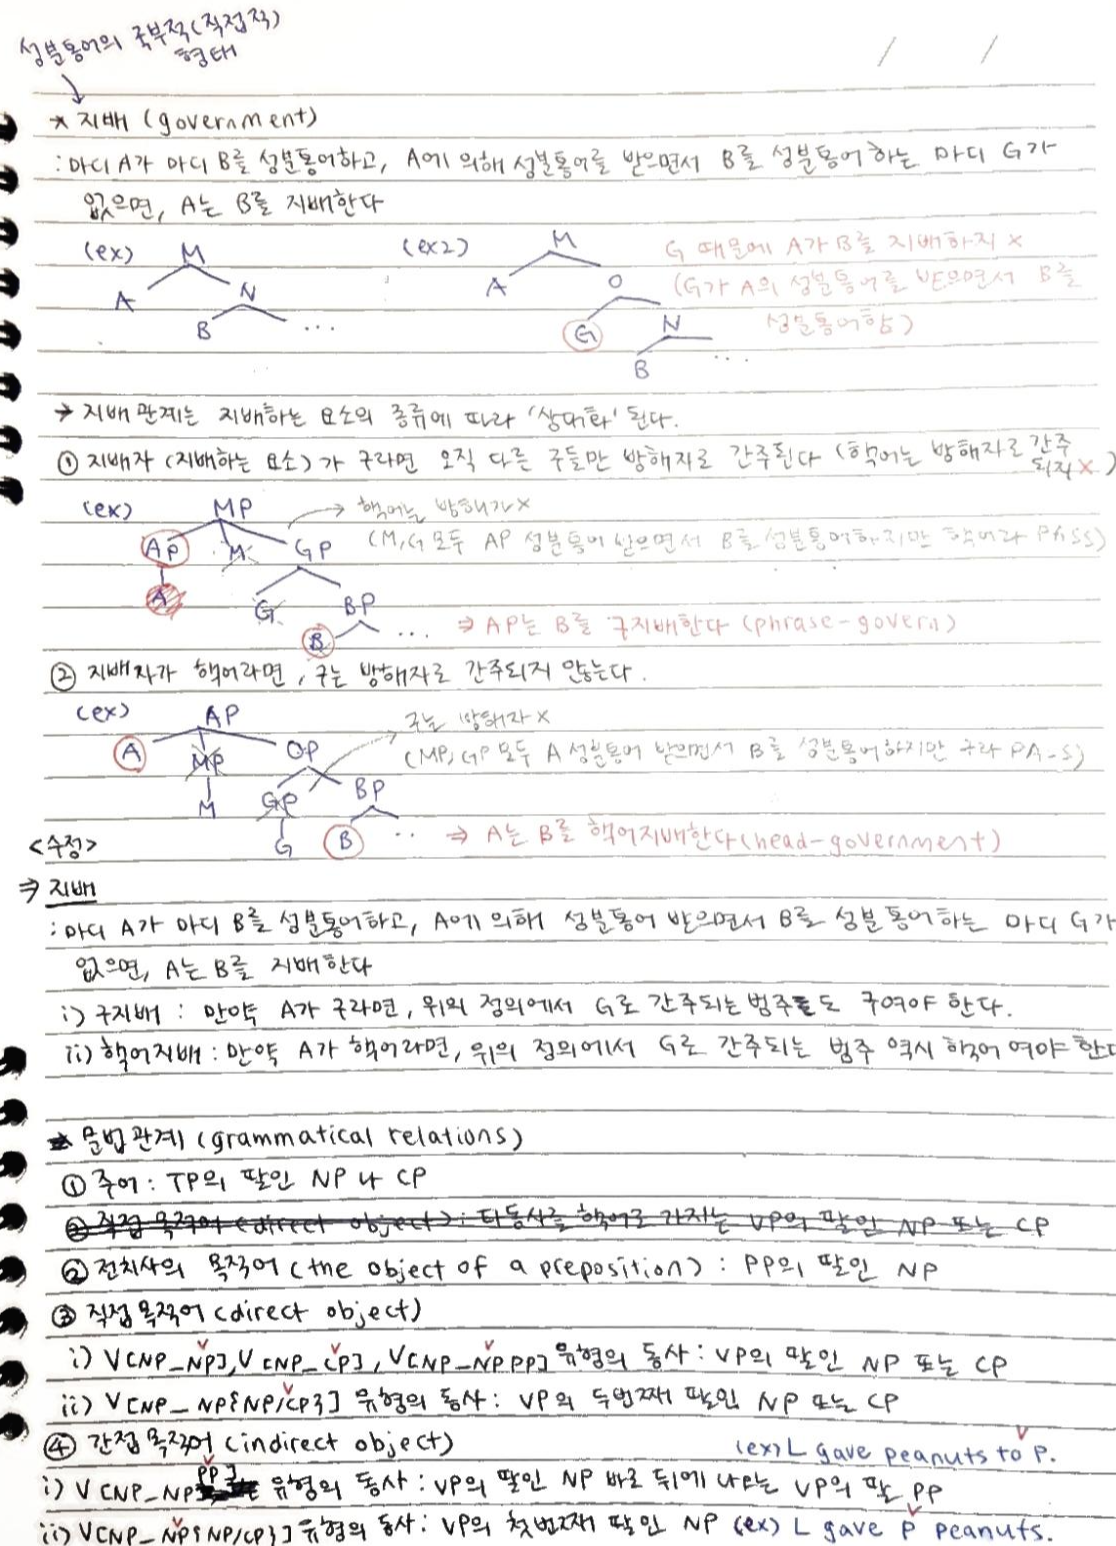 성분통어의 국부적(직접적)
형태
* 지배 (government)
: 마디 A가 마디 B를 성분통어하고, A에 의해 성분통어를 받으면서 B를 성분통어하는 마디 G가
없으면, A는 B를 지배한다
(ex) M (ex2) M G 때문에 A가 B를 지배하지 X
A N A O (G가 A의 성분통어를 받으면서 B를
B ... G N 성분통어함)
B ...
→ 지배 관계는 지배하는 요소의 종류에 따라 '상대화' 된다.
① 지배자 (지배하는 요소)가 구라면 오직 다른 구들만 방해자로 간주된다 (핵어는 방해자로 간주
되지 X)
(ex) MP → 핵어는 방해자 X
AP M GP (M, G 모두 AP 성분통어 받으면서 B를 성분통어하지만 핵어라 PASS)
A G BP
B ... ⇒ AP는 B를 구지배한다 (phrase-govern)
② 지배자가 핵어라면, 구는 방해자로 간주되지 않는다.
(ex) AP 구는 방해자 X
A MP OP (MP, GP 모두 A 성분통어 받으면서 B를 성분통어하지만 구라 PA-S)
M GP BP
G B .. ⇒ A는 B를 핵어지배한다(head-government)
<수정>
⇒ 지배
: 마디 A가 마디 B를 성분통어하고, A에 의해 성분통어 받으면서 B를 성분통어하는 마디 G가
없으면, A는 B를 지배한다
i) 구지배 : 만약 A가 구라면, 위의 정의에서 G로 간주되는 범주도 구여야 한다.
ii) 핵어지배 : 만약 A가 핵어라면, 위의 정의에서 G로 간주되는 범주 역시 핵어여야 한다
* 문법관계 (grammatical relations)
① 주어 : TP의 딸인 NP나 CP
② 직접 목적어 (direct object) : 타동사를 핵어로 가지는 VP의 딸인 NP 또는 CP
② 전치사의 목적어 (the object of a preposition) : PP의 딸인 NP
③ 직접 목적어 (direct object)
i) V[NP_NP], V[NP_CP], V[NP_NP PP] 유형의 동사 : VP의 딸인 NP 또는 CP
ii) V[NP_ NP{NP/CP}] 유형의 동사 : VP의 두번째 딸인 NP 또는 CP
④ 간접 목적어 (indirect object) (ex) L gave peanuts to P.
i) V[NP_NP PP] 유형의 동사 : VP의 딸인 NP 바로 뒤에 나오는 VP의 딸 PP
ii) V[NP_ NP{NP/CP}] 유형의 동사 : VP의 첫번째 딸인 NP (ex) L gave P peanuts.